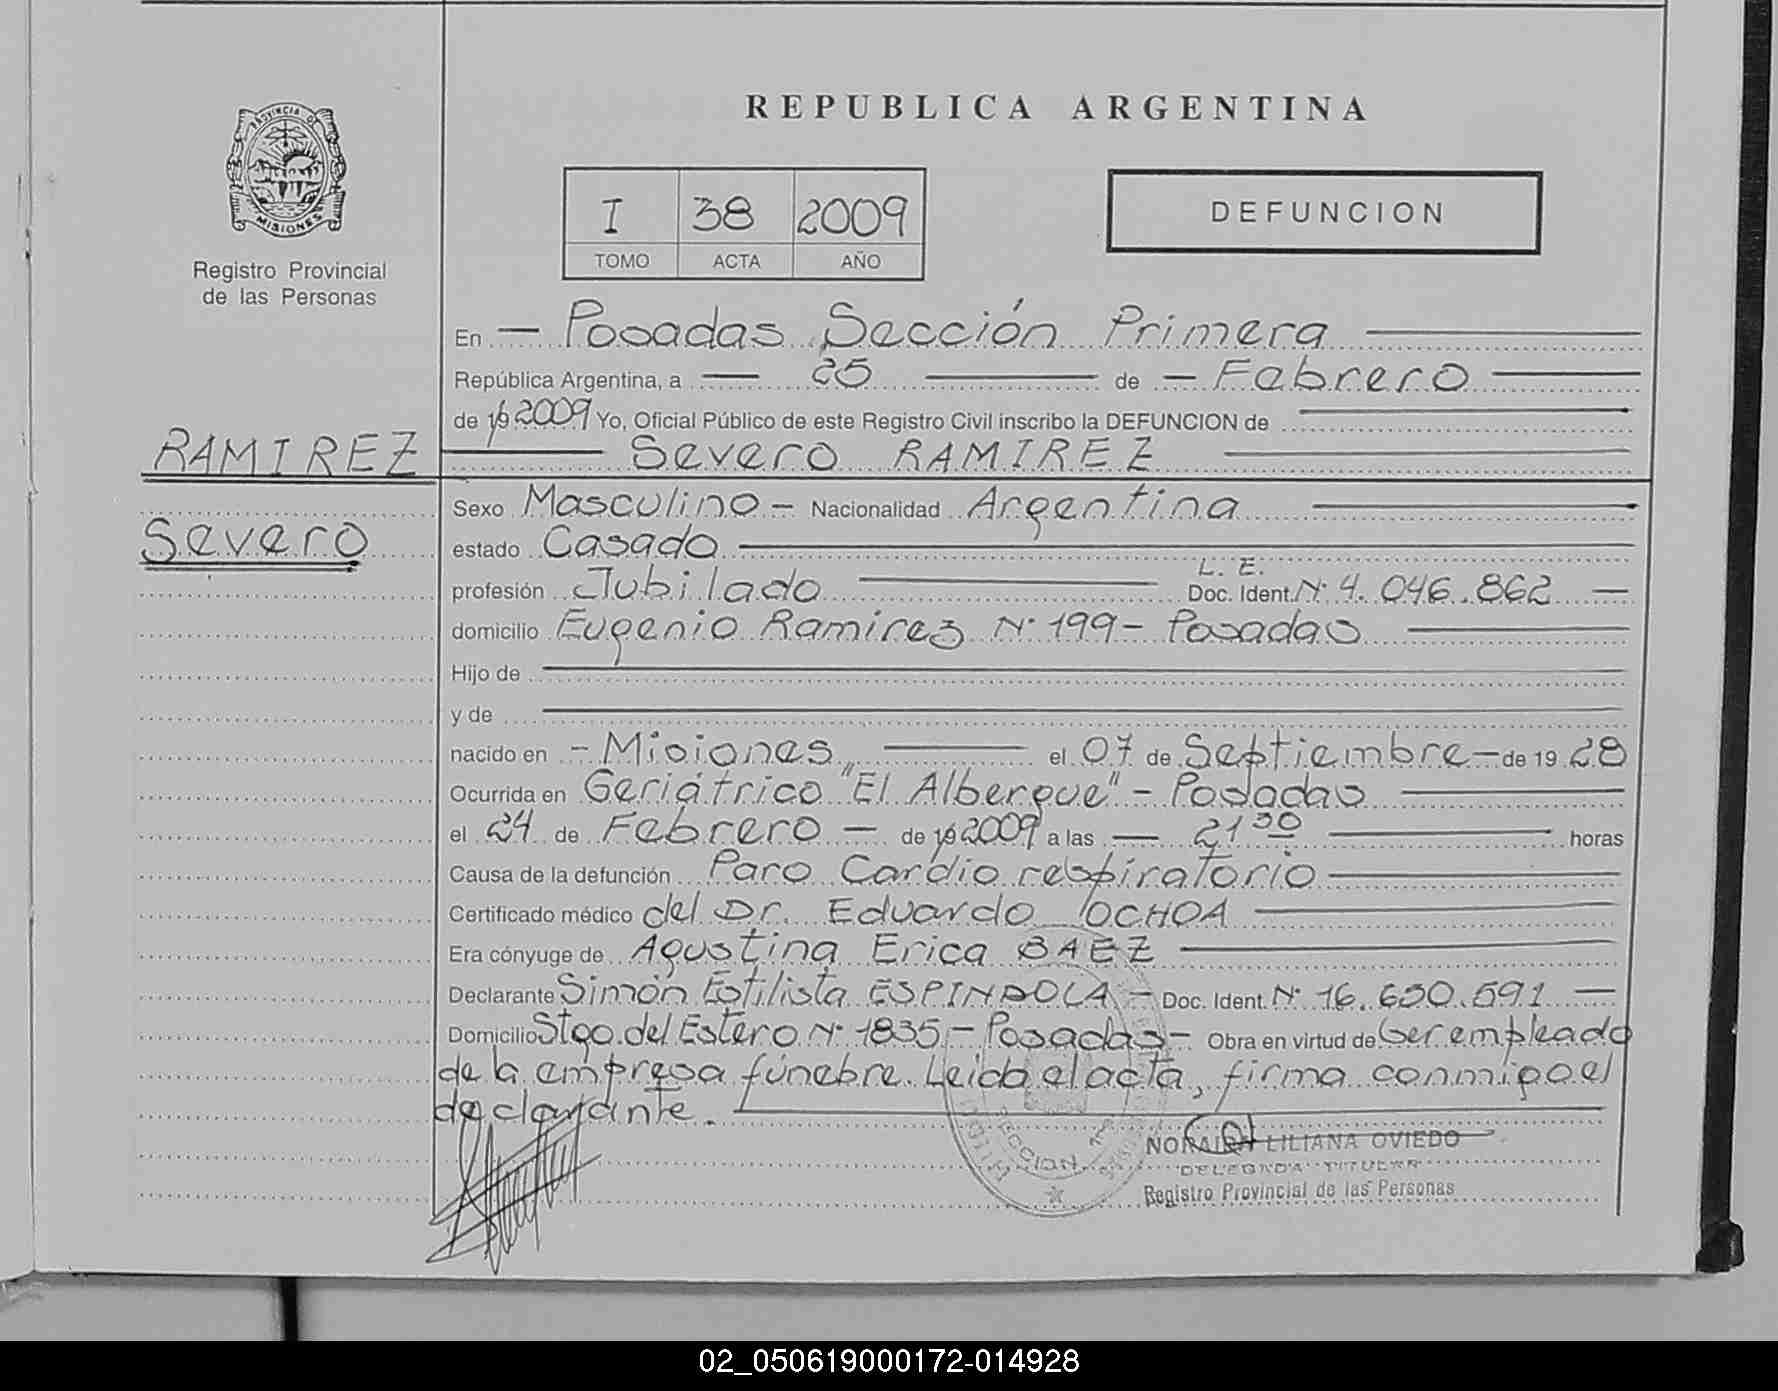 REPUBLICA ARGENTINA
PROVINCIA DE
MISIONES
Registro Provincial
de las Personas
I 38 2009
TOMO ACTA AÑO
DEFUNCION
En — Posadas Sección Primera
República Argentina, a — 25 — de — Febrero
de 19 2009 Yo, Oficial Público de este Registro Civil inscribo la DEFUNCION de
RAMIREZ
Severo RAMIREZ
Sexo Masculino — Nacionalidad Argentina
Severo
estado Casado
L. E.
profesión Jubilado Doc. Ident. Nº 4.046.862 —
domicilio Eugenio Ramirez Nº 199 — Posadas
Hijo de
y de
nacido en — Misiones, — el 07 de Septiembre — de 19 28
Ocurrida en Geriátrico "El Albergue" — Posadas
el 24 de Febrero — de 19 2009 a las — 21 30 — horas
Causa de la defunción Paro Cardio respiratorio
Certificado médico del Dr. Eduardo OCHOA
Era cónyuge de Agustina Erica BAEZ
Declarante Simón Estilista ESPINDOLA — Doc. Ident. Nº 16.650.591 —
Domicilio Stgo. del Estero Nº 1835 — Posadas — Obra en virtud de Ser empleado
de la empresa fúnebre. Leida el acta, firma conmigo el
declarante.
NORAIRA LILIANA OVIEDO
DELEGADA TITULAR
Registro Provincial de las Personas
02_050619000172-014928